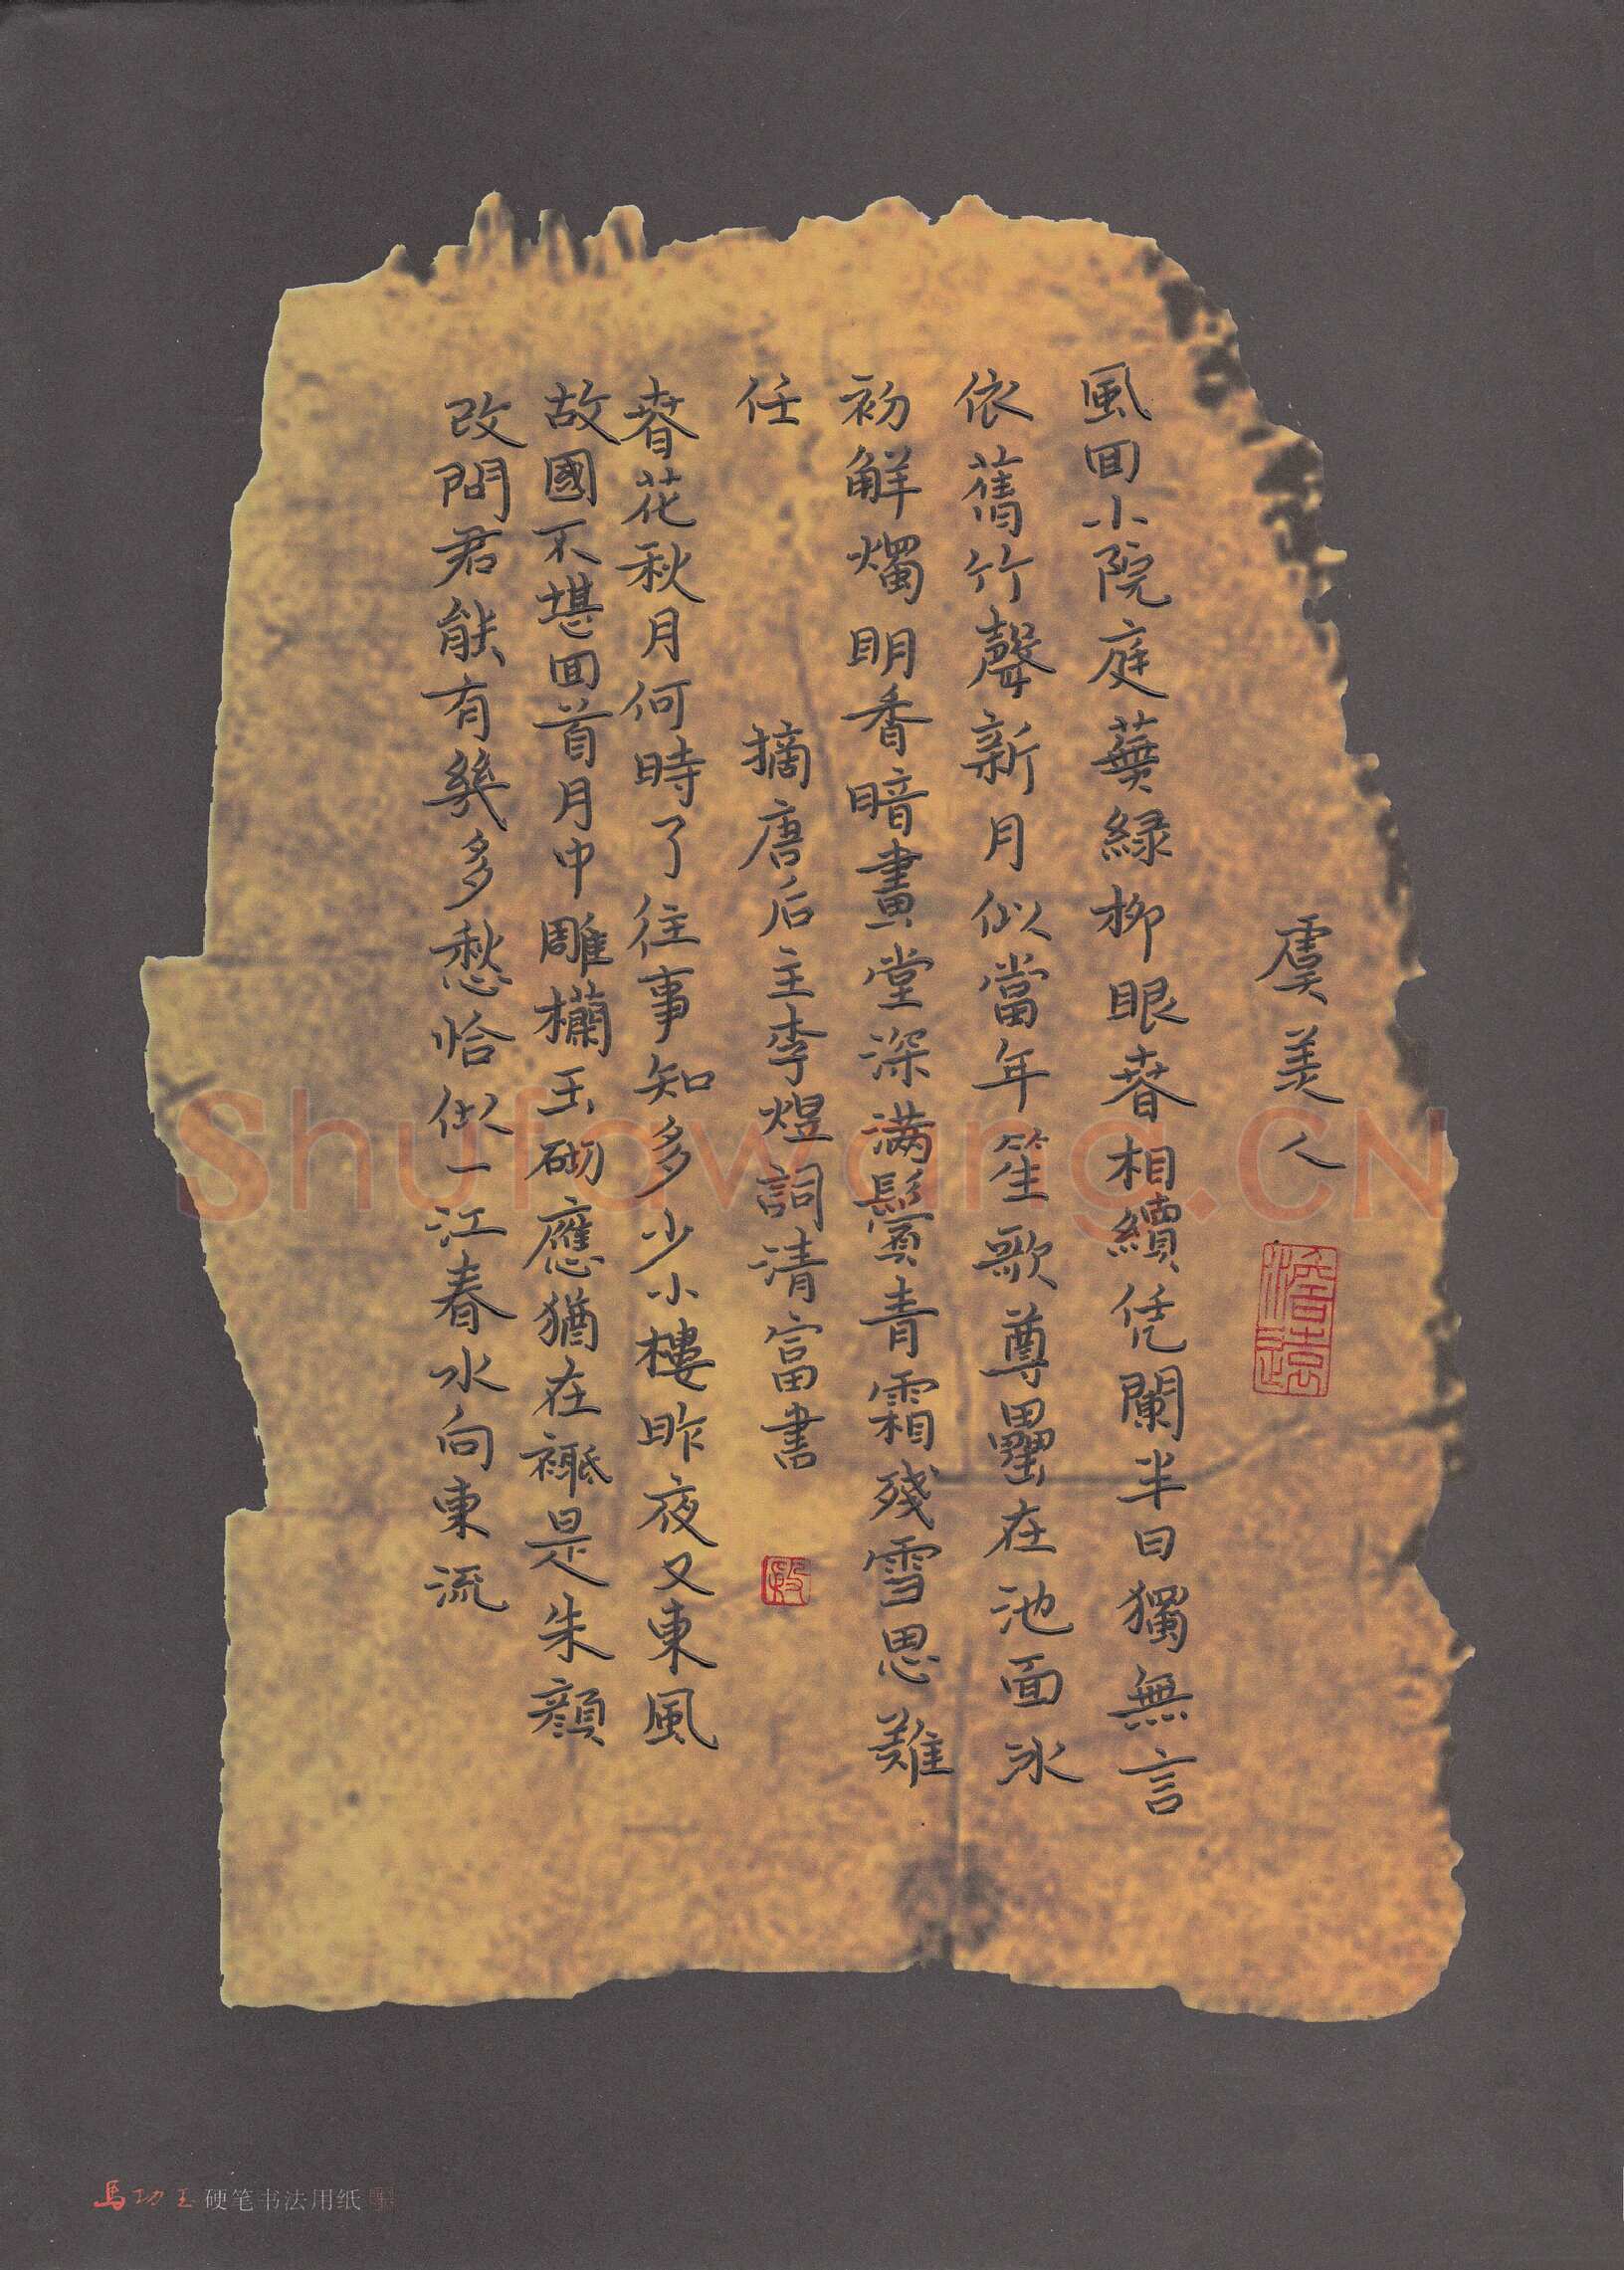 虞美人
風回小院庭蕪緑柳眼春相續凭闌半日獨無言
依舊竹聲新月似當年笙歌尊罍在池面冰
初解燭明香暗畫堂深满鬢青霜殘雪思難
任
摘唐后主李煜詞清富書
春花秋月何時了往事知多少小樓昨夜又東風
故國不堪回首月中雕欗玉砌應猶在祗是朱顏
改問君能有幾多愁恰似一江春水向東流
Shufawang.CN
硬笔书法用纸